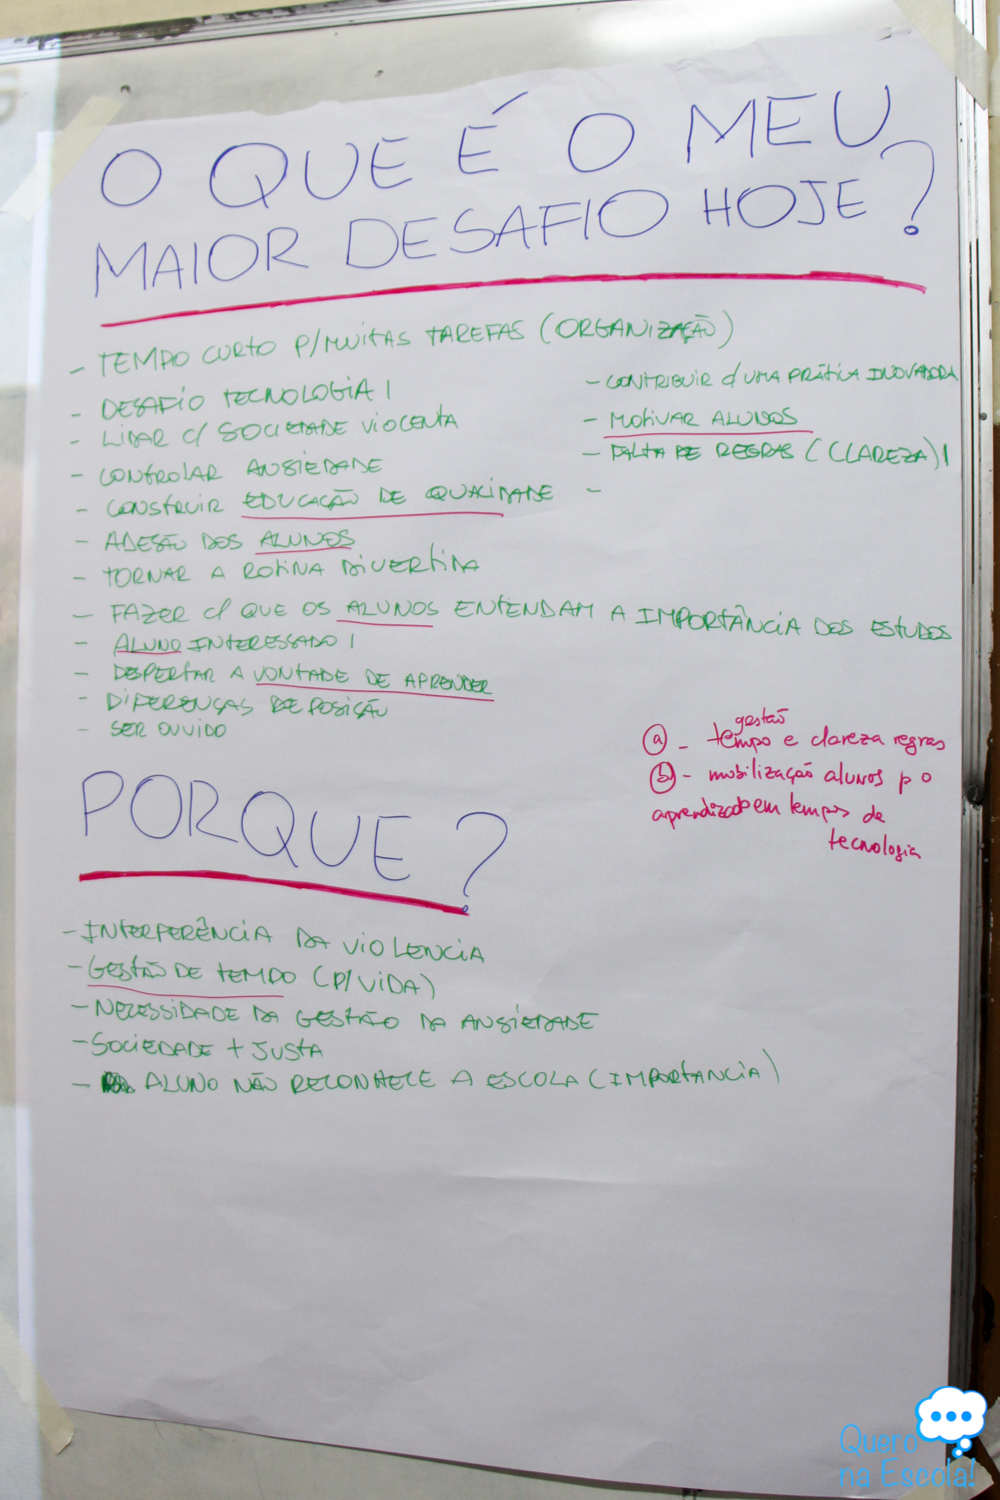 O QUE É O MEU
MAIOR DESAFIO HOJE?
- TEMPO CURTO P/MUITAS TAREFAS (ORGANIZAÇÃO)
- DESAFIO TECNOLOGIA |
- LIDAR C/ SOCIEDADE VIOLENTA
- CONTROLAR ANSIEDADE
- CONSTRUIR EDUCAÇÃO DE QUALIDADE
- ADESÃO DOS ALUNOS
- TORNAR A ROTINA DIVERTIDA
- FAZER C/ QUE OS ALUNOS ENTENDAM A IMPORTÂNCIA DOS ESTUDOS
- ALUNO INTERESSADO |
- DESPERTAR A VONTADE DE APRENDER
- DIFERENÇAS DE POSIÇÃO
- SER OUVIDO
- CONTRIBUIR C/ UMA PRÁTICA INOVADORA
- MOTIVAR ALUNOS
- FALTA DE REGRAS (CLAREZA) |
-
gestão
a - tempo e clareza regras
b - mobilização alunos p o
aprendizado em tempos de
tecnologia
PORQUE?
- INTERFERÊNCIA DA VIOLENCIA
- GESTÃO DE TEMPO (P/ VIDA)
- NECESSIDADE DA GESTÃO DA ANSIEDADE
- SOCIEDADE + JUSTA
- ALUNO NÃO RECONHECE A ESCOLA (IMPORTANCIA)
Quero
na Escola!